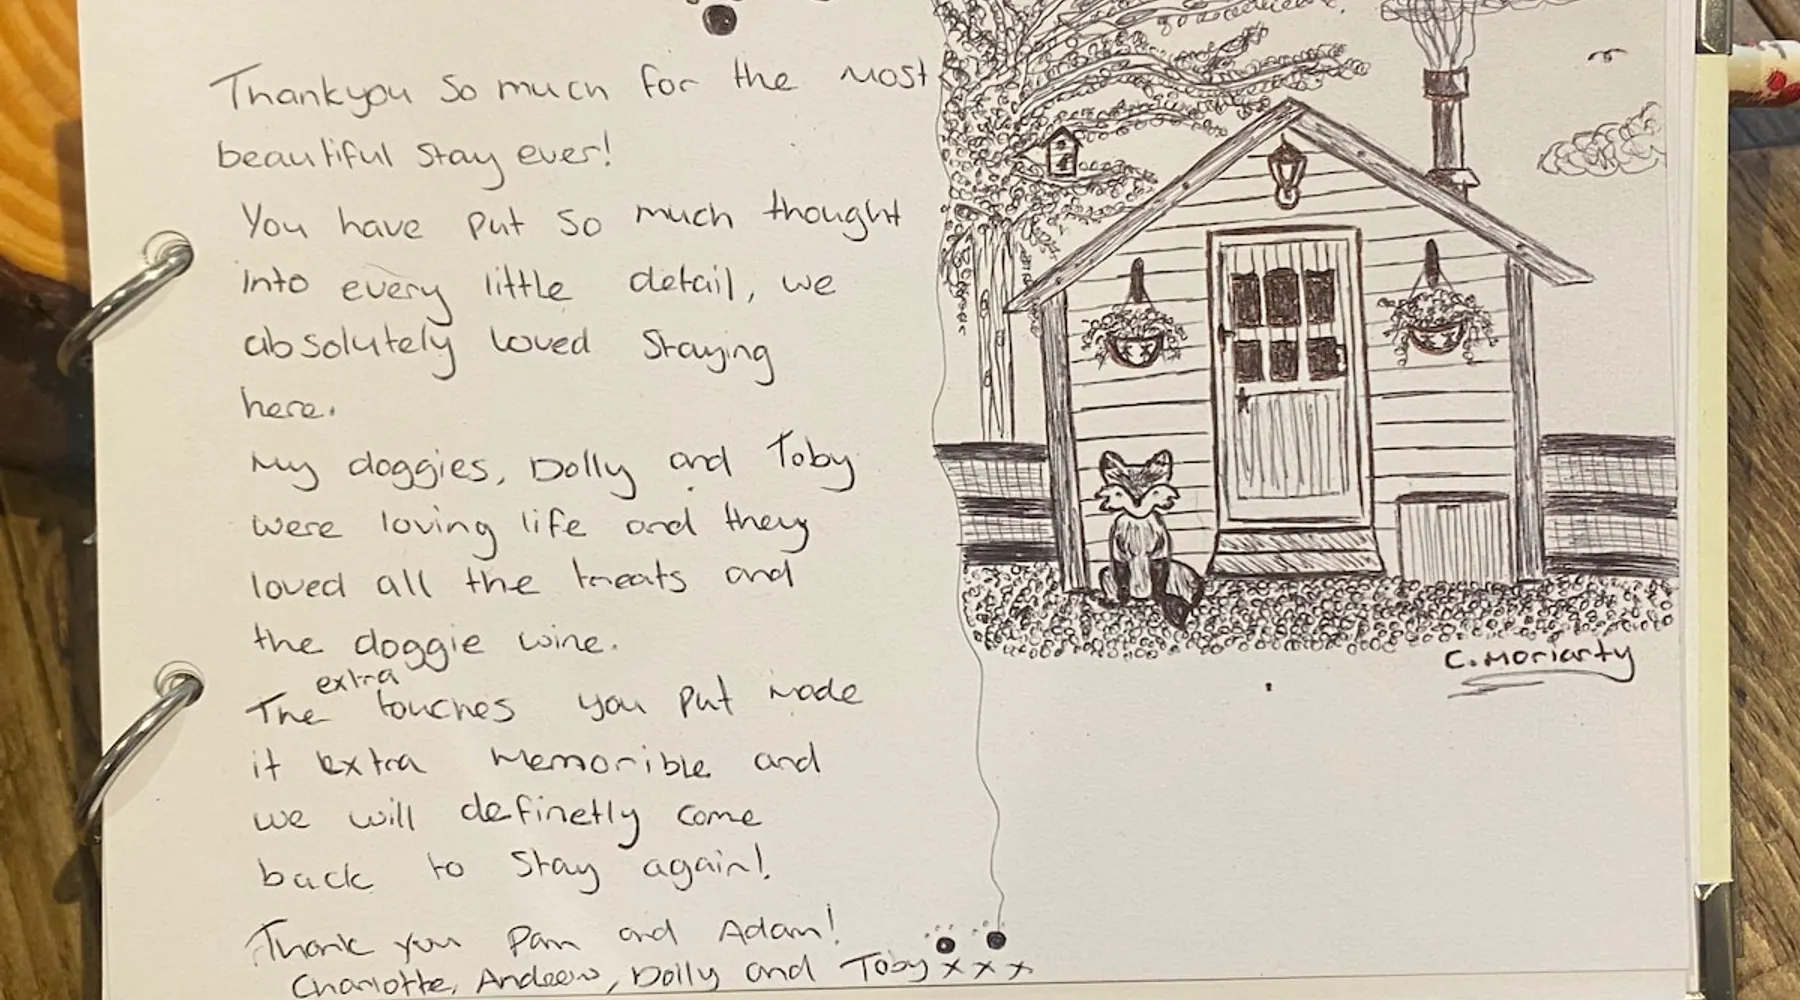 Thankyou so much for the most
beautiful stay ever!
You have put so much thought
into every little detail, we
absolutely loved staying
here.
My doggies, Dolly and Toby
were loving life and they
loved all the treats and
the doggie wine.
The extra touches you put made
it extra memorible and
we will definetly come
back to stay again!
Thank you Pam and Adam!
Charlotte, Andrew, Dolly and Toby xxx
C. Moriarty